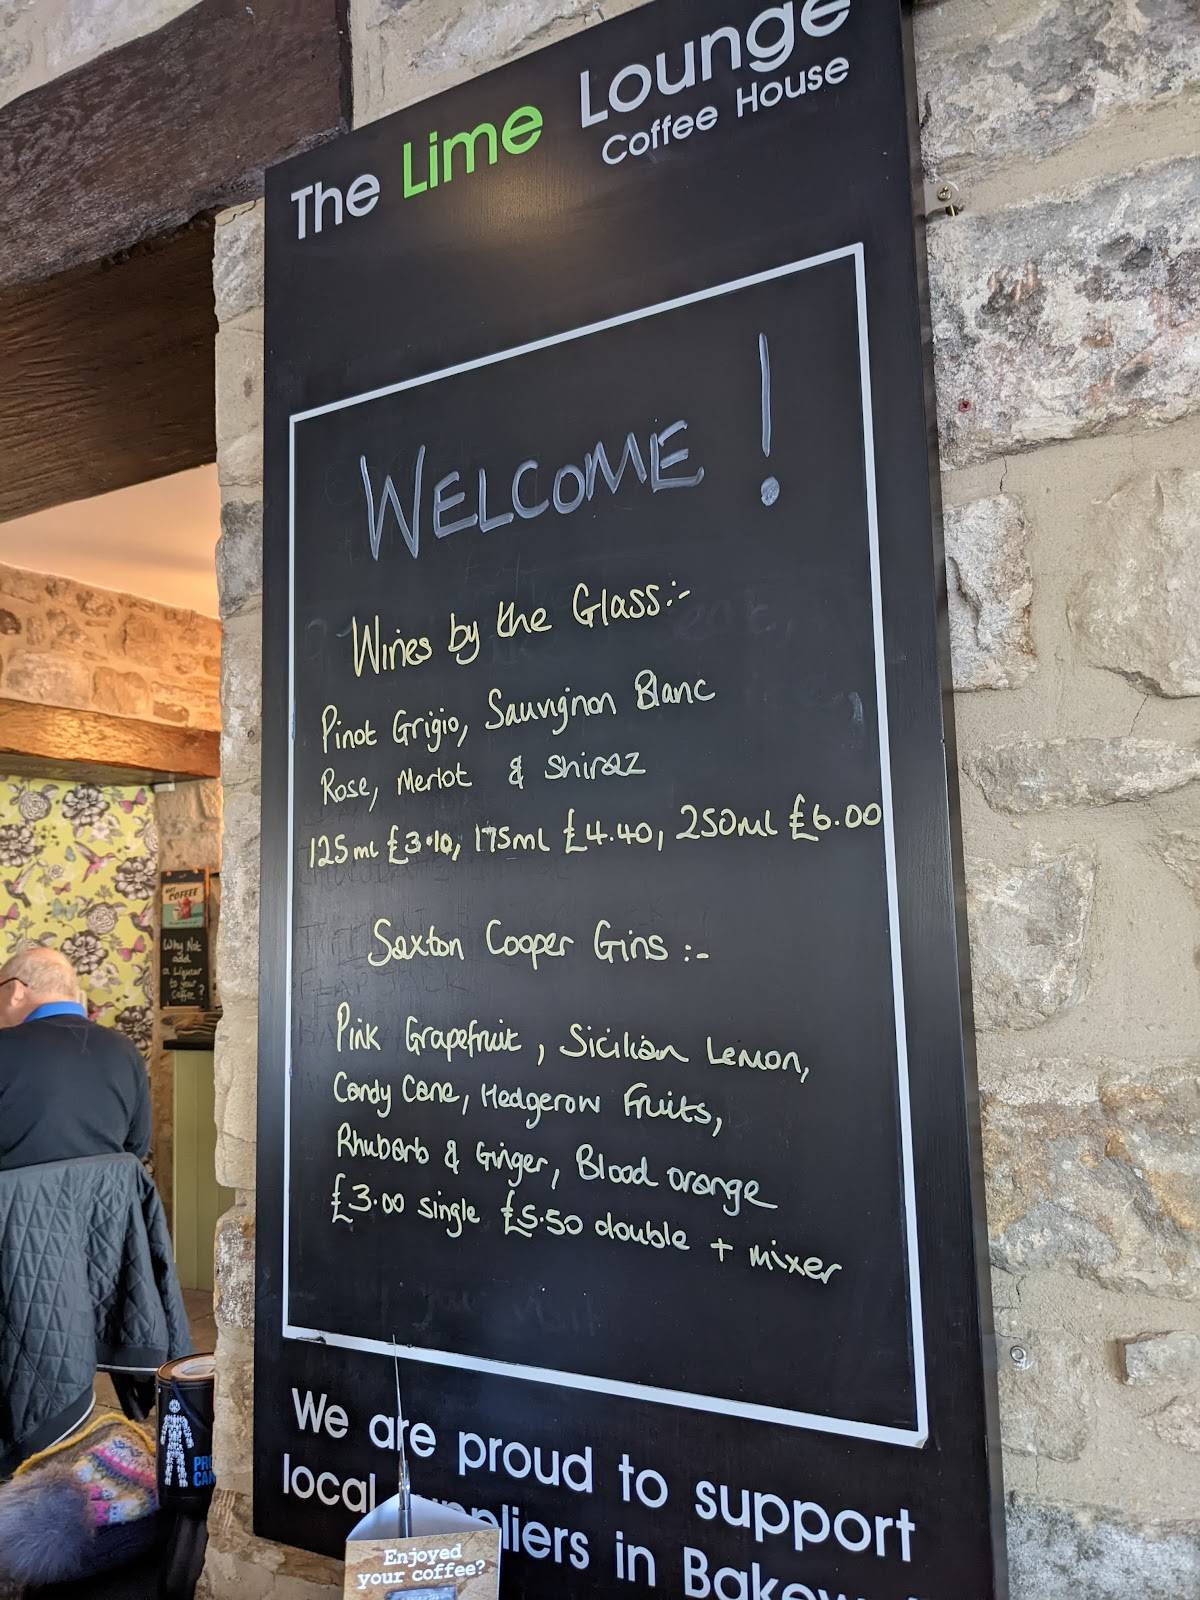 The Lime Lounge
Coffee House
WELCOME!
Wines by the Glass:-
Pinot Grigio, Sauvignon Blanc
Rose, Merlot & Shiraz
125ml £3.10, 175ml £4.40, 250ml £6.00
Saxton Cooper Gins :-
Pink Grapefruit, Sicilian Lemon,
Candy Cane, Hedgerow Fruits,
Rhubarb & Ginger, Blood orange
£3.00 single £5.50 double + mixer
We are proud to support
local suppliers in
Enjoyed
your coffee?
COFFEE
Why Not
add
a Liqueur
to your
Coffee?